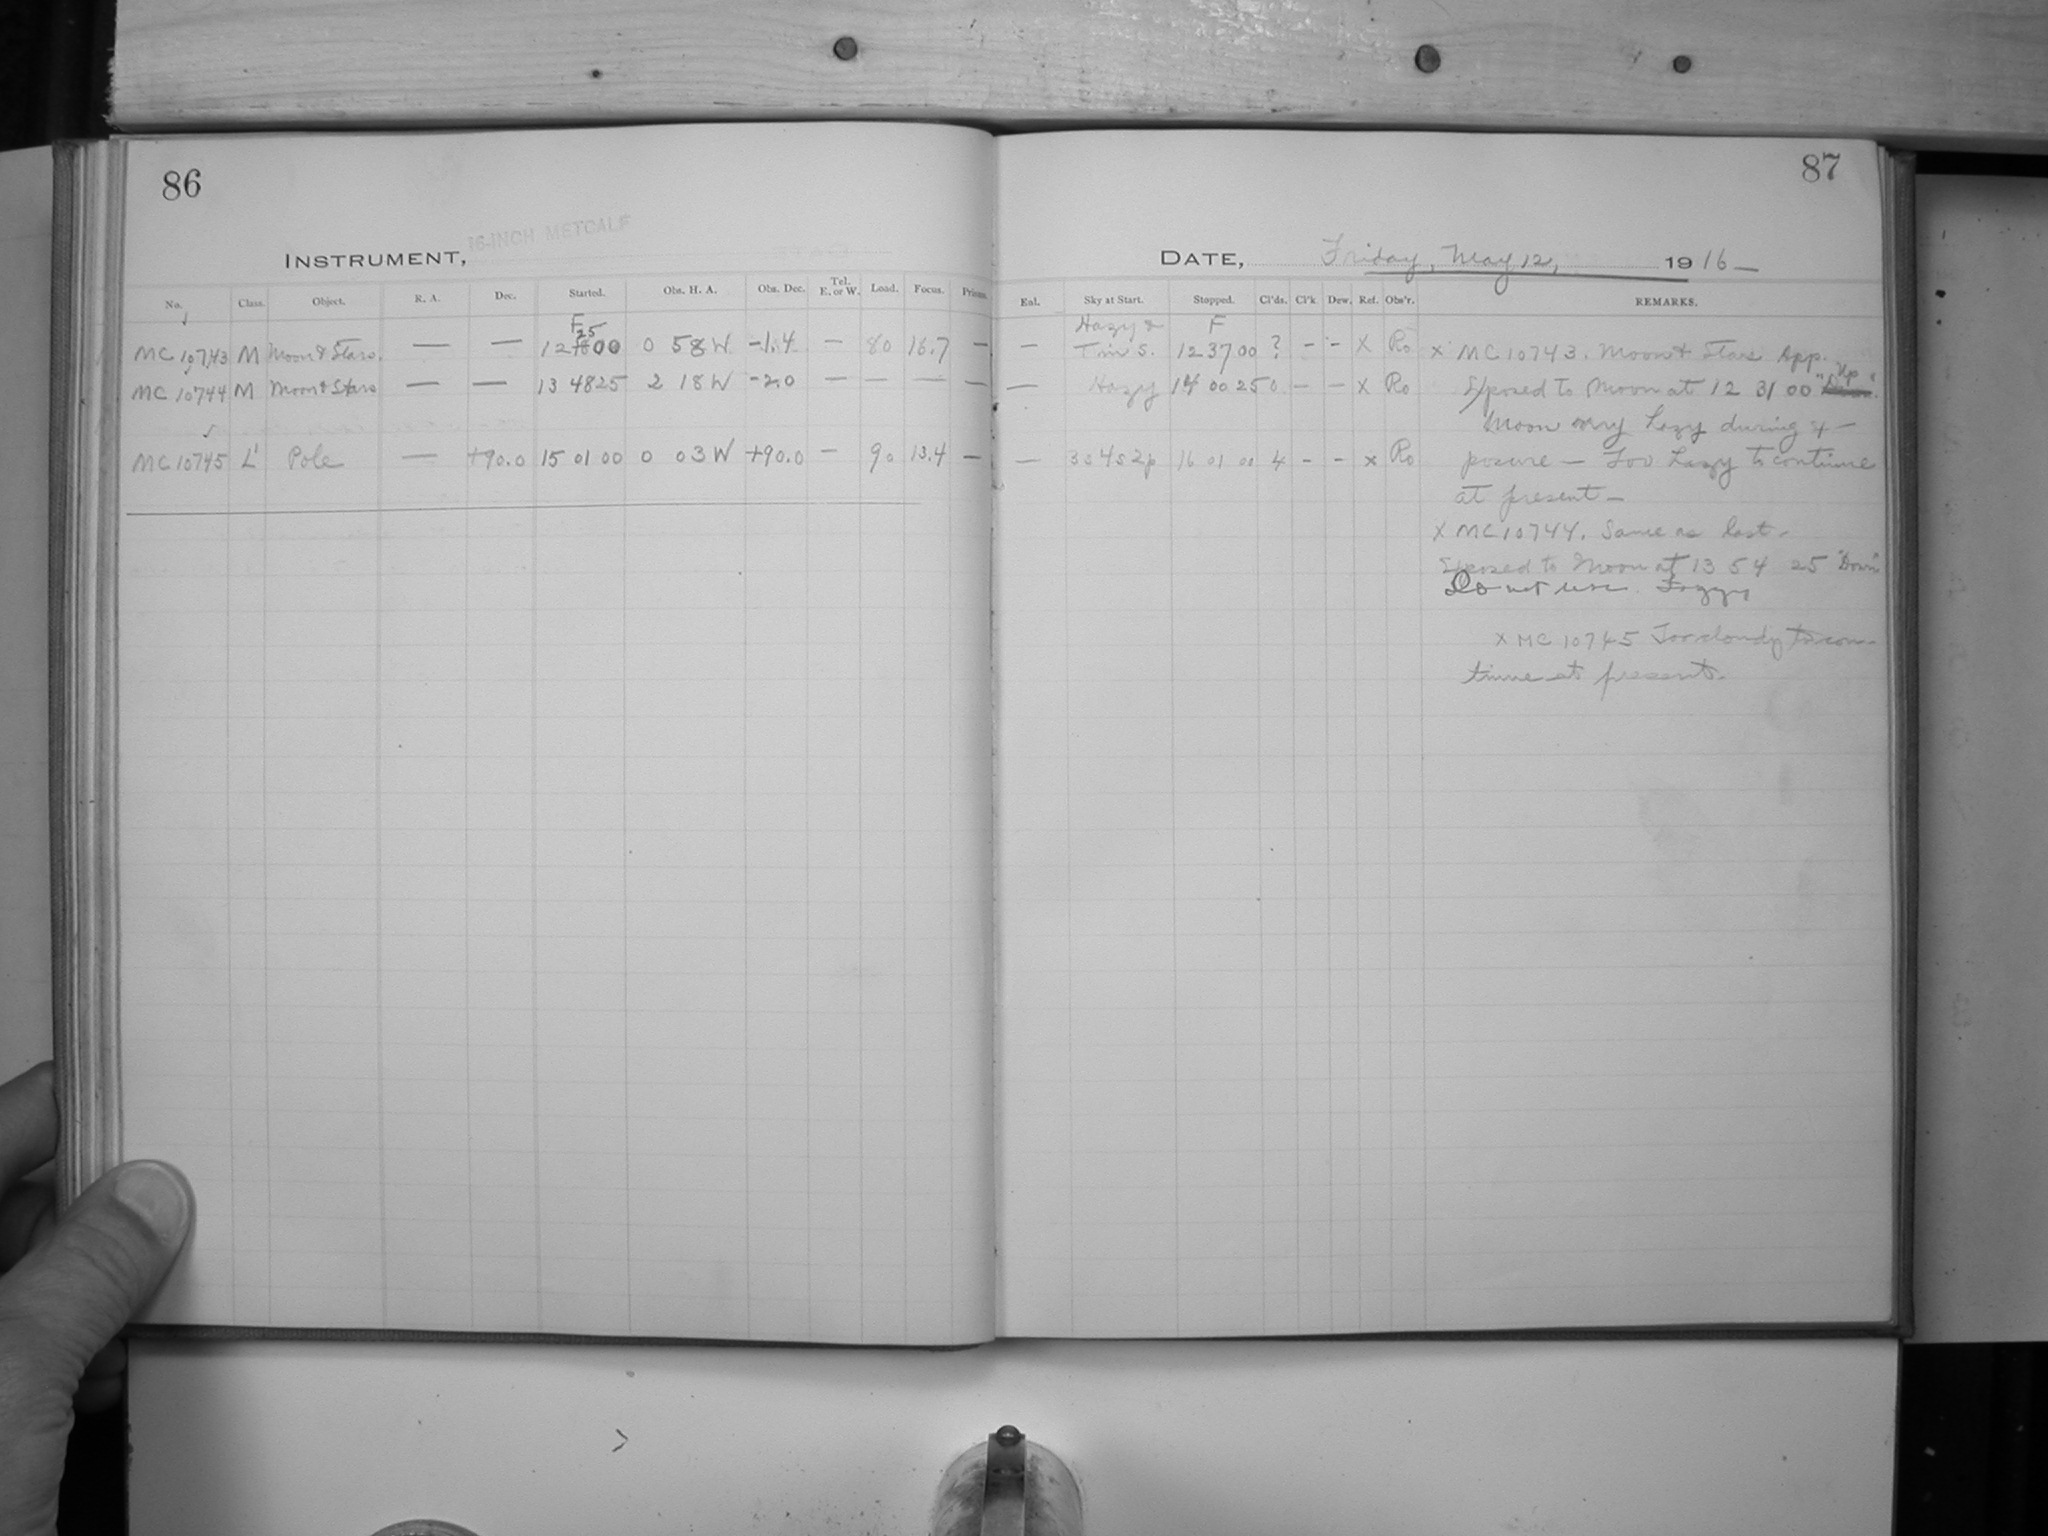 86
87
16-INCH METCALF
INSTRUMENT,
DATE, Friday, May 12, 1916
No. Class. Object. R. A. Dec. Started. Obs. H. A. Obs. Dec. Tel. E. or W. Load. Focus. Prisms. Eal. Sky at Start. Stopped. Cl'ds. Cl'k Dew. Ref. Obs'r. REMARKS.
F 25 Hazy & F
MC 10743 M Moon & Stars. — — 12 00 0 58 W -1.4 — 80 16.7 — — Tm S. 12 37 00 ? - - X Ro x MC 10743. Moon & Stars App.
MC 10744 M Moon & Stars — — 13 48 25 2 18 W -2.0 — — — — — Hazy 14 00 25 0 — — X Ro Exposed to Moon at 12 31 00 "Up"
Moon very hazy during ex-
MC 10745 L' Pole — +90.0 15 01 00 0 03 W +90.0 — 90 13.4 — — 3s 4s 2p 16 01 00 4 - - x Ro posure — Too hazy to continue
at present —
X MC 10744. Same as last.
Exposed to Moon at 13 54 25 "Down"
Do not use. Foggy
x MC 10745 Too cloudy to con-
tinue at present.